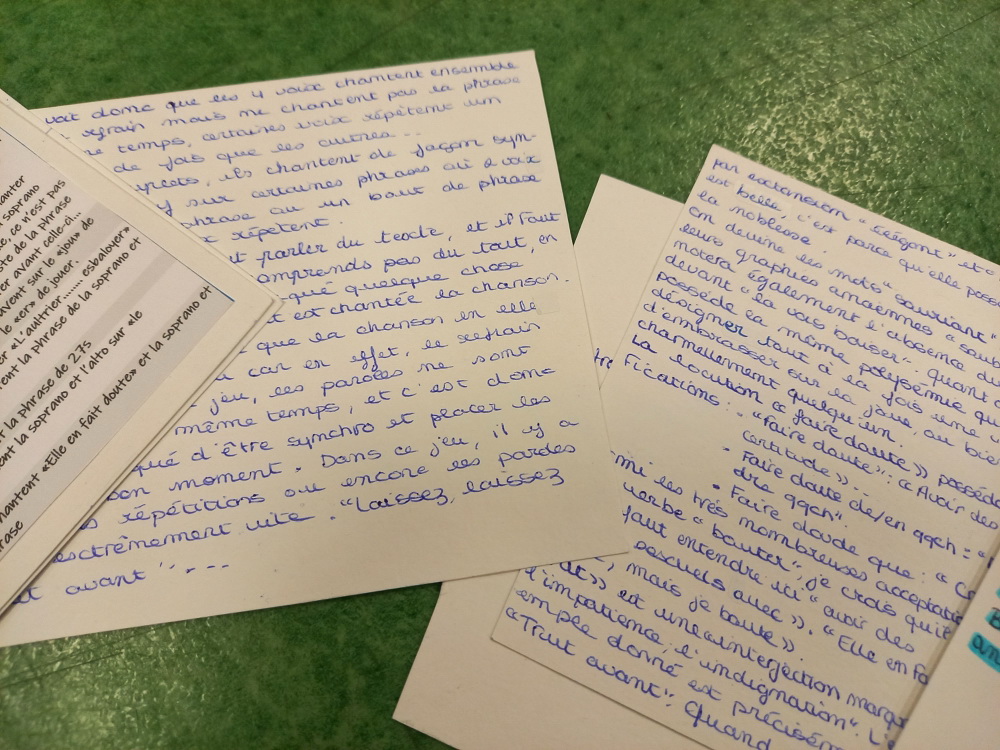 anter
soprano
, ce n'est pas
ste de la phrase
er avant celle-ci...
avent sur le «jou» de
le «er» de jouer.
er «L'autrier....... esbaloyer»
ent la phrase de la soprano et
r la phrase de 27s
ont la soprano et l'alto sur «le
hantent «Elle en fait doute» et la soprano et
rase
voit donc que les 4 voix chantent ensemble
refrain mais ne chantent pas la phrase
temps, certaines voix répètent un
de fois que les autres...
ils chantent de façon sym-
sur certaines phrases où 2 voix
phrase ou un bout de phrase
répètent.
parler du texte, et il faut
omprends pas du tout, en
qué quelque chose,
est chantée la chanson.
que la chanson en elle
car en effet, le refrain
jeu, les paroles ne sont
même temps, et c'est donc
qué d'être synchro et placer les
bon moment. Dans ce jeu, il y a
répétitions ou encore les paroles
extrêmement vite. "Laissez, laissez
avant", ...
par extension "élégant" et
est belle, c'est parce qu'elle poss
la noblesse.
on devine les mots "souriant"
leurs graphies anciennes
notera également l'absence du
devant "la vois baiser". Quant
possède la même polysémie qu
désigner tout à la fois une
d'embrasser sur la joue, ou bie
charnellement quelqu'un.
La locution « faire doute » posséd
fications :
- "faire doute" : "Avoir des
certitude".
• Faire doute de/en qqch : "
dre qqch".
• Faire doute que : "Cr
mi les très nombreuses acceptati
verbe "bouter", je crois qu'il
faut entendre ici "avoir des
sexuels avec". "Elle en fa
, mais je boute".
» est une interjection marqu
l'impatience, l'indignation". L'
emple donné est précisém
"Trut avant". Quand